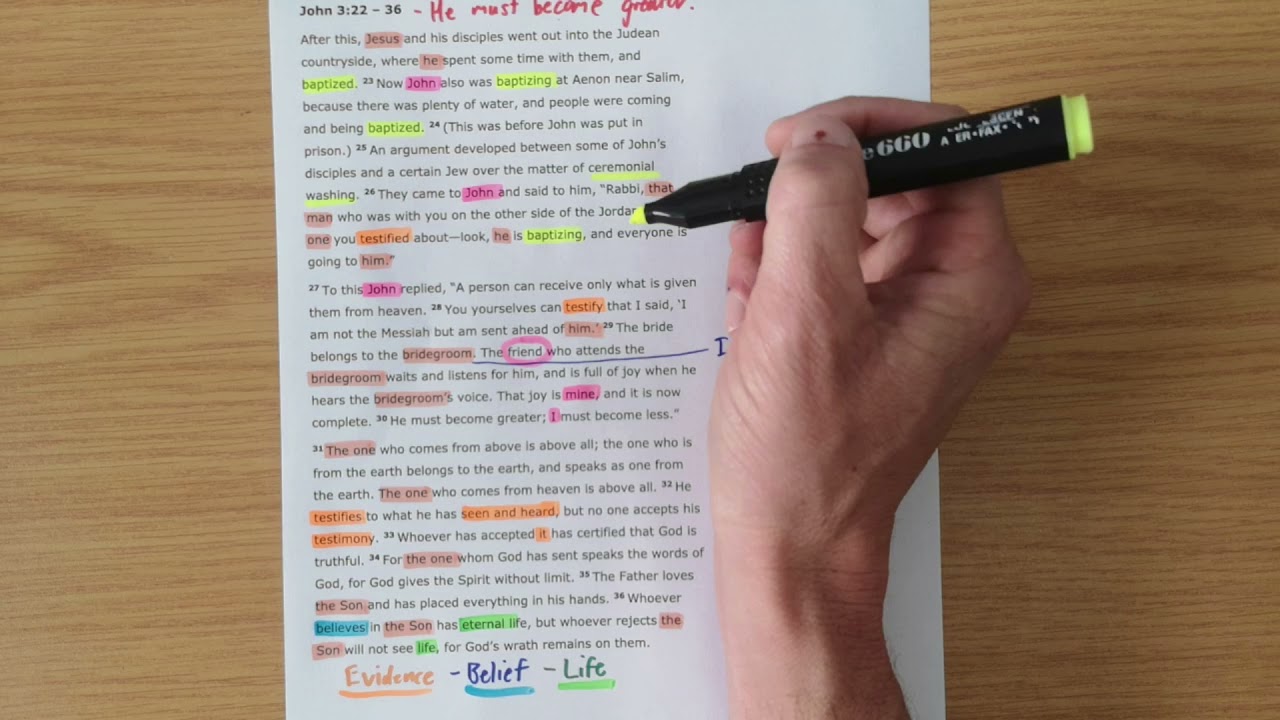 John 3:22 – 36 - He must become greater.
After this, Jesus and his disciples went out into the Judean
countryside, where he spent some time with them, and
baptized. 23 Now John also was baptizing at Aenon near Salim,
because there was plenty of water, and people were coming
and being baptized. 24 (This was before John was put in
prison.) 25 An argument developed between some of John's
disciples and a certain Jew over the matter of ceremonial
washing. 26 They came to John and said to him, "Rabbi, that
man who was with you on the other side of the
one you testified about—look, he is baptizing, and everyone is
going to him."
27 To this John replied, "A person can receive only what is given
them from heaven. 28 You yourselves can testify that I said, 'I
am not the Messiah but am sent ahead of him.' 29 The bride
belongs to the bridegroom. The friend who attends the
bridegroom waits and listens for him, and is full of joy when he
hears the bridegroom's voice. That joy is mine, and it is now
complete. 30 He must become greater; I must become less."
31 The one who comes from above is above all; the one who is
from the earth belongs to the earth, and speaks as one from
the earth. The one who comes from heaven is above all. 32 He
testifies to what he has seen and heard, but no one accepts his
testimony. 33 Whoever has accepted it has certified that God is
truthful. 34 For the one whom God has sent speaks the words of
God, for God gives the Spirit without limit. 35 The Father loves
the Son and has placed everything in his hands. 36 Whoever
believes in the Son has eternal life, but whoever rejects the
Son will not see life, for God's wrath remains on them.
Evidence - Belief - Life
660